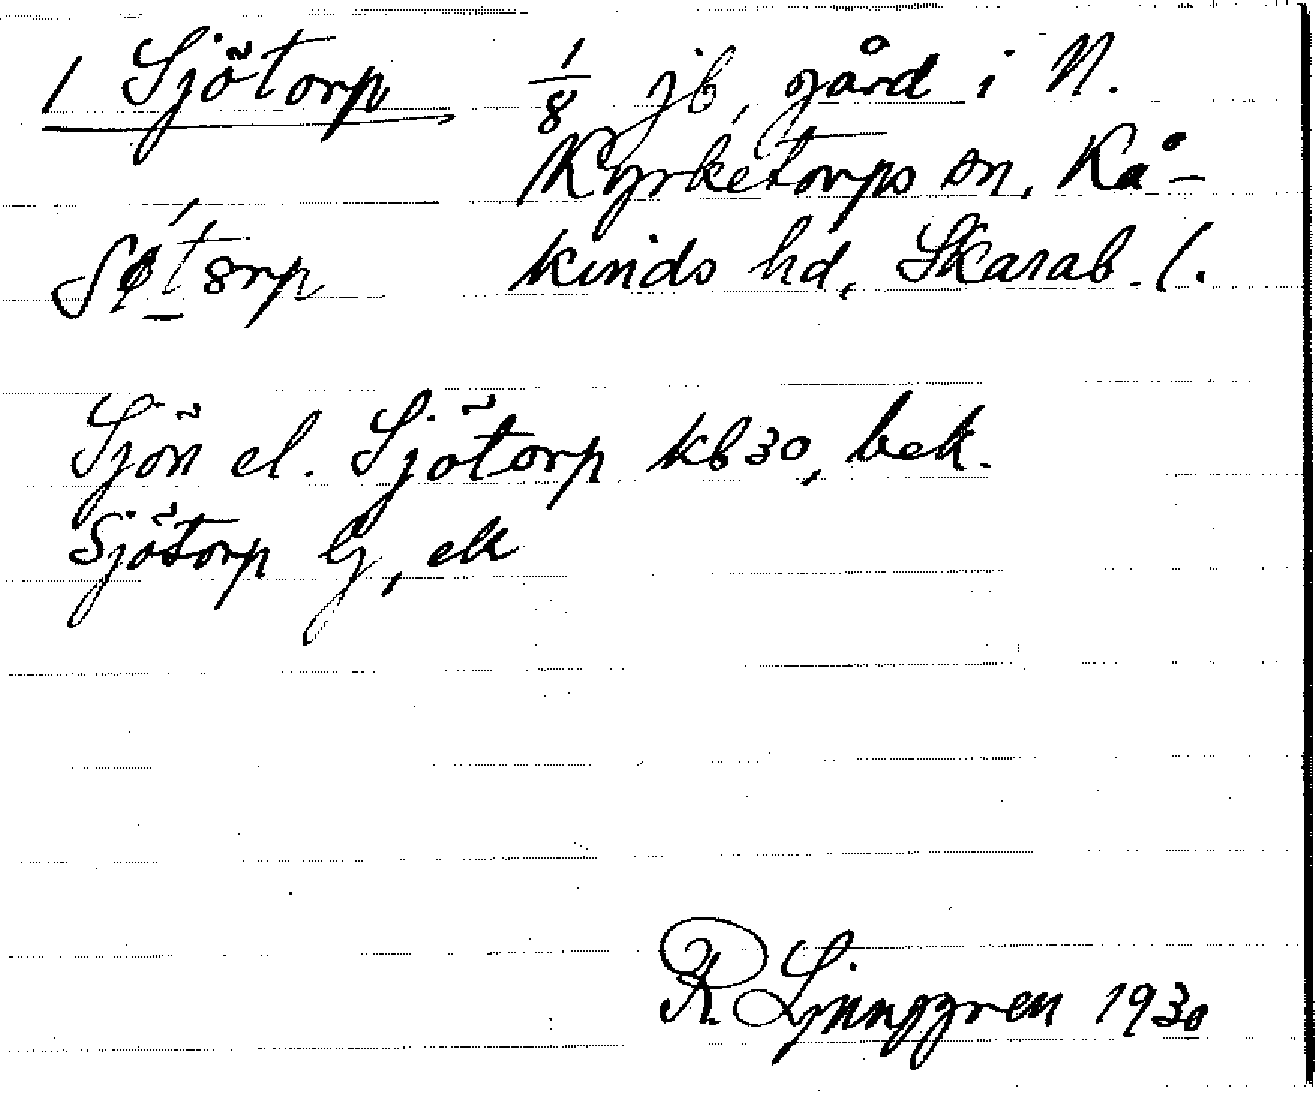 1 Sjötorp 1/8 jb, gård i N.
Kyrketorps sn, Kå-
kinds hd, Skarab. l.
Sjön el. Sjötorp kb 30, bek.
Sjötorp G, ek
R. Ljunggren 1930